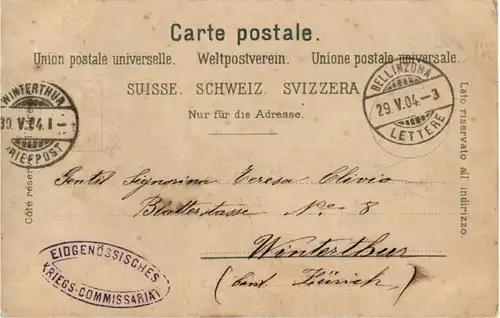 Carte postale.
Union postale universelle. Weltpostverein. Unione postale universale.
SUISSE. SCHWEIZ. SVIZZERA.
Nur für die Adresse.
WINTERTHUR
30. V. 04. 1
BRIEFPOST
BELLINZONA
29. V. 04.-3
LETTERE
Côté réservé
Lato riservato all indirizzo.
Gentil Signorina Teresa Olivio
Blatterstasse No. 8
Winterthur
(Cant Zürich)
EIDGENÖSSISCHES
KRIEGS-COMMISSARIAT